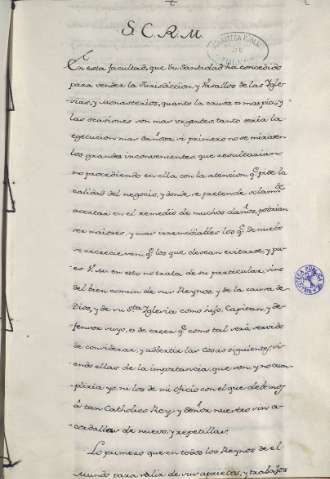 S. C. R. M.
En esta facultad, que su Santidad ha concedido
para vender la Jurisdiccion y Vasallos de las Igle-
sias, y Monasterios, quanto la causa es mayor, y
las ocasiones son mas vrgentes, tanto seria la
egecucion mas dañosa si primero no se mirasen
los grandes inconvenientes que resultarian
no procediendo en ella con la atencion q.e pide la
calidad del negocio, y donde se pretende solam.te
acertar en el remedio de muchos daños, podrian
ser maiores, y mas irremediables los q.e de nuebo
se recreciesen q.e los que desean evitarse, y pu-
es V. M. en esto no trata de su particular, sino
del bien comun de sus Reynos, y de la causa de
Dios, y de su S.ta Iglesia como hijo, Capitan, y de-
fensor suyo, es de creer q.e como tal será servido
de considerar, y advertir las cosas siguientes, si-
endo ellas de la importancia que son, y no cum-
pliria yo ni los de mi oficio con el que debemos
á tan Catholico Rey, y Señor nuestro sin a-
cordallas de nuevo, y repetillas.
Lo primero que en todos los Reynos de el
Mundo para salir de sus aprietos, y trabajos